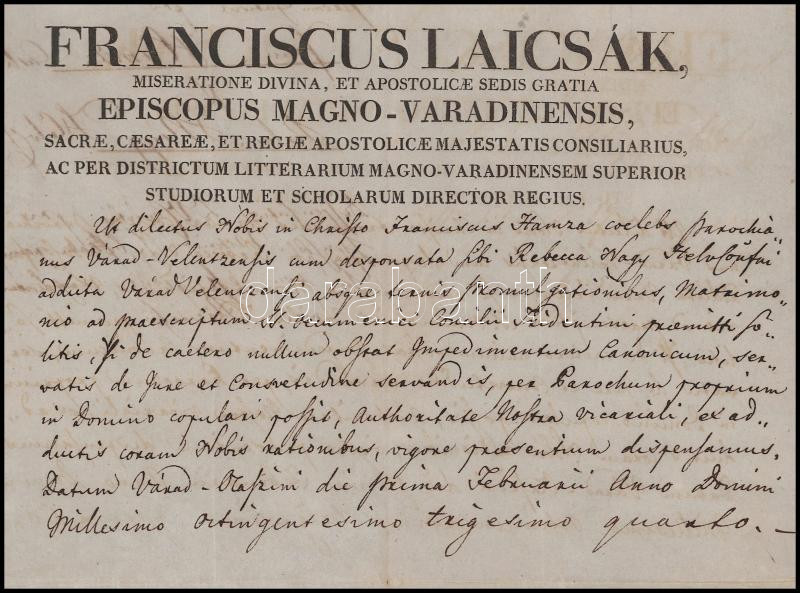 FRANCISCUS LAICSÁK,
MISERATIONE DIVINA, ET APOSTOLICÆ SEDIS GRATIA
EPISCOPUS MAGNO-VARADINENSIS,
SACRÆ, CÆSAREÆ, ET REGIÆ APOSTOLICÆ MAJESTATIS CONSILIARIUS,
AC PER DISTRICTUM LITTERARIUM MAGNO-VARADINENSEM SUPERIOR
STUDIORUM ET SCHOLARUM DIRECTOR REGIUS.
Ut dilectus Nobis in Christo Franciscus Hamza coelebs Parochia„
nus Várad-Velentzensis cum desponsata sibi Rebecca Nagy
addicta Várad Velentzensi absque ternis promulgationibus, Matrimo„
nio ad praescriptum S. Concilii Tridentini praemitti so„
litis, si de caetero nullum obstat Impedimentum Canonicum, ser„
vatis de Jure et Consvetudine servandis, per Parochum proprium
in Domino copulari possit, Authoritate Nostra vicariali, ex ad„
ductis coram Nobis rationibus, vigore praesentium dispensamus.
Datum Várad-Olaszini die prima Februarii Anno Domini
Millesimo octingentesimo trigesimo quarto.-
darabanth